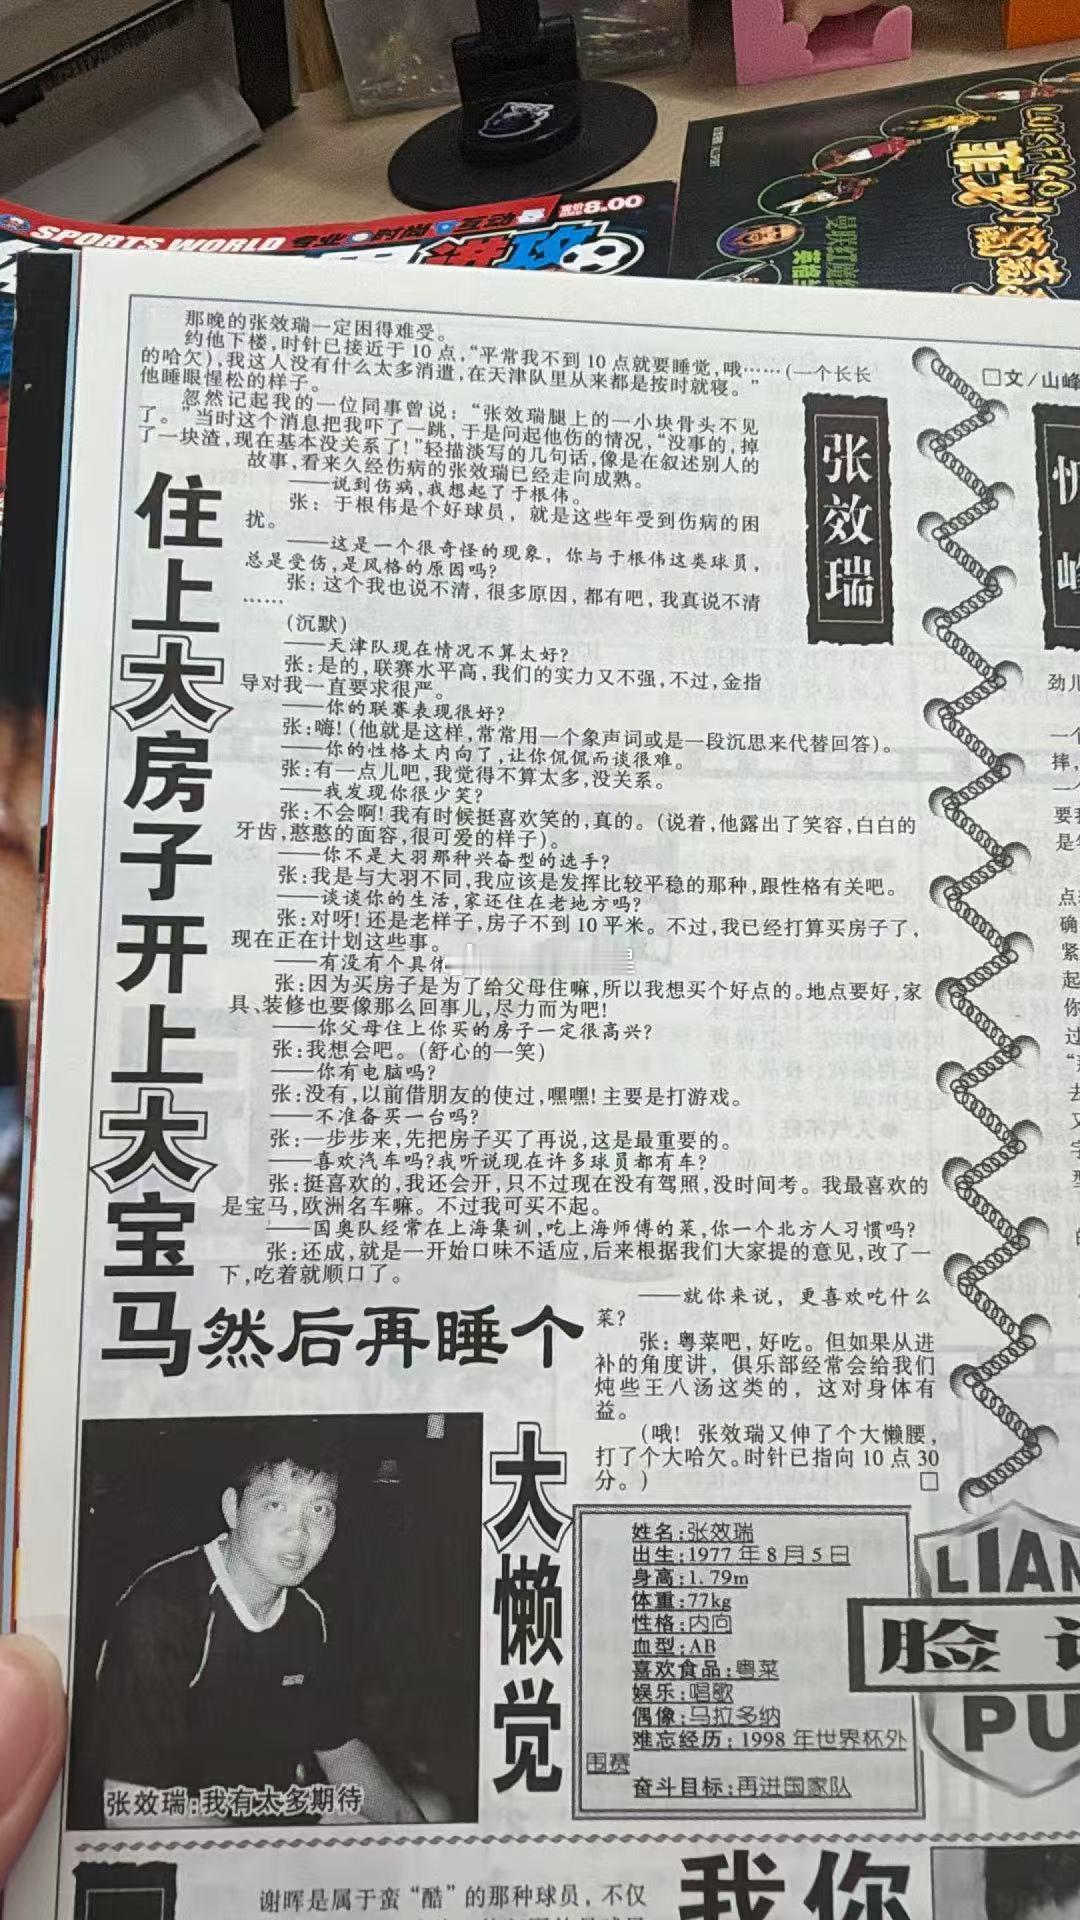 SPORTS WORLD 专业 时尚 互动
8.00
LUIS FIGO
那晚的张效瑞一定困得难受。
约他下楼，时针已接近于10点，“平常我不到10点就要睡觉，哦……(一个长长
的哈欠)，我这人没有什么太多消遣，在天津队里从来都是按时就寝。”
他睡眼惺松的样子。
忽然记起我的一位同事曾说：“张效瑞腿上的一小块骨头不见
了。”当时这个消息把我吓了一跳，于是问起他伤的情况，“没事的，掉
了一块渣，现在基本没关系了！”轻描淡写的几句话，像是在叙述别人的
故事，看来久经伤病的张效瑞已经走向成熟。
——说到伤病，我想起了于根伟。
张：于根伟是个好球员，就是这些年受到伤病的困
扰。
——这是一个很奇怪的现象，你与于根伟这类球员，
总是受伤，是风格的原因吗？
张：这个我也说不清，很多原因，都有吧，我真说不清
……
(沉默)
——天津队现在情况不算太好？
张：是的，联赛水平高，我们的实力又不强，不过，金指
导对我一直要求很严。
——你的联赛表现很好？
张：嗨！(他就是这样，常常用一个象声词或是一段沉思来代替回答)。
——你的性格太内向了，让你侃侃而谈很难。
张：有一点儿吧，我觉得不算太多，没关系。
——我发现你很少笑？
张：不会啊！我有时候挺喜欢笑的，真的。(说着，他露出了笑容，白白的
牙齿，憨憨的面容，很可爱的样子)。
——你不是大羽那种兴奋型的选手？
张：我是与大羽不同，我应该是发挥比较平稳的那种，跟性格有关吧。
——谈谈你的生活，家还住在老地方吗？
张：对呀！还是老样子，房子不到10平米。不过，我已经打算买房子了，
现在正在计划这些事。
——有没有个具体
张：因为买房子是为了给父母住嘛，所以我想买个好点的。地点要好，家
具、装修也要像那么回事儿，尽力而为吧！
——你父母住上你买的房子一定很高兴？
张：我想会吧。(舒心的一笑)
——你有电脑吗？
张：没有，以前借朋友的使过，嘿嘿！主要是打游戏。
——不准备买一台吗？
张：一步步来，先把房子买了再说，这是最重要的。
——喜欢汽车吗？我听说现在许多球员都有车？
张：挺喜欢的，我还会开，只不过现在没有驾照，没时间考。我最喜欢的
是宝马，欧洲名车嘛。不过我可买不起。
——国奥队经常在上海集训，吃上海师傅的菜，你一个北方人习惯吗？
张：还成，就是一开始口味不适应，后来根据我们大家提的意见，改了一
下，吃着就顺口了。
——就你来说，更喜欢吃什么
菜？
张：粤菜吧，好吃。但如果从进
补的角度讲，俱乐部经常会给我们
炖些王八汤这类的，这对身体有
益。
(哦！张效瑞又伸了个大懒腰，
打了个大哈欠。时针已指向10点30
分。)□
住上大房子开上大宝马
然后再睡个
大懒觉
□文/山峰
张效瑞
张效瑞：我有太多期待
姓名：张效瑞
出生：1977年8月5日
身高：1.79m
体重：77kg
性格：内向
血型：AB
喜欢食品：粤菜
娱乐：唱歌
偶像：马拉多纳
难忘经历：1998年世界杯外
围赛
奋斗目标：再进国家队
LIAN
脸
PU
谢晖是属于蛮“酷”的那种球员，不仅
我你